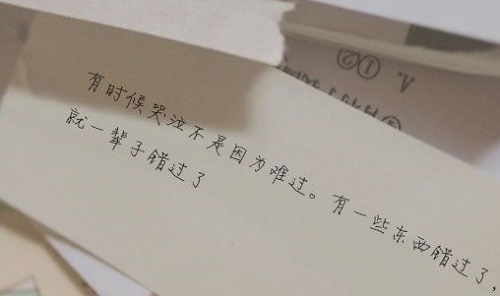 有时候哭泣不是因为难过。有一些东西错过了，
就一辈子错过了
①②